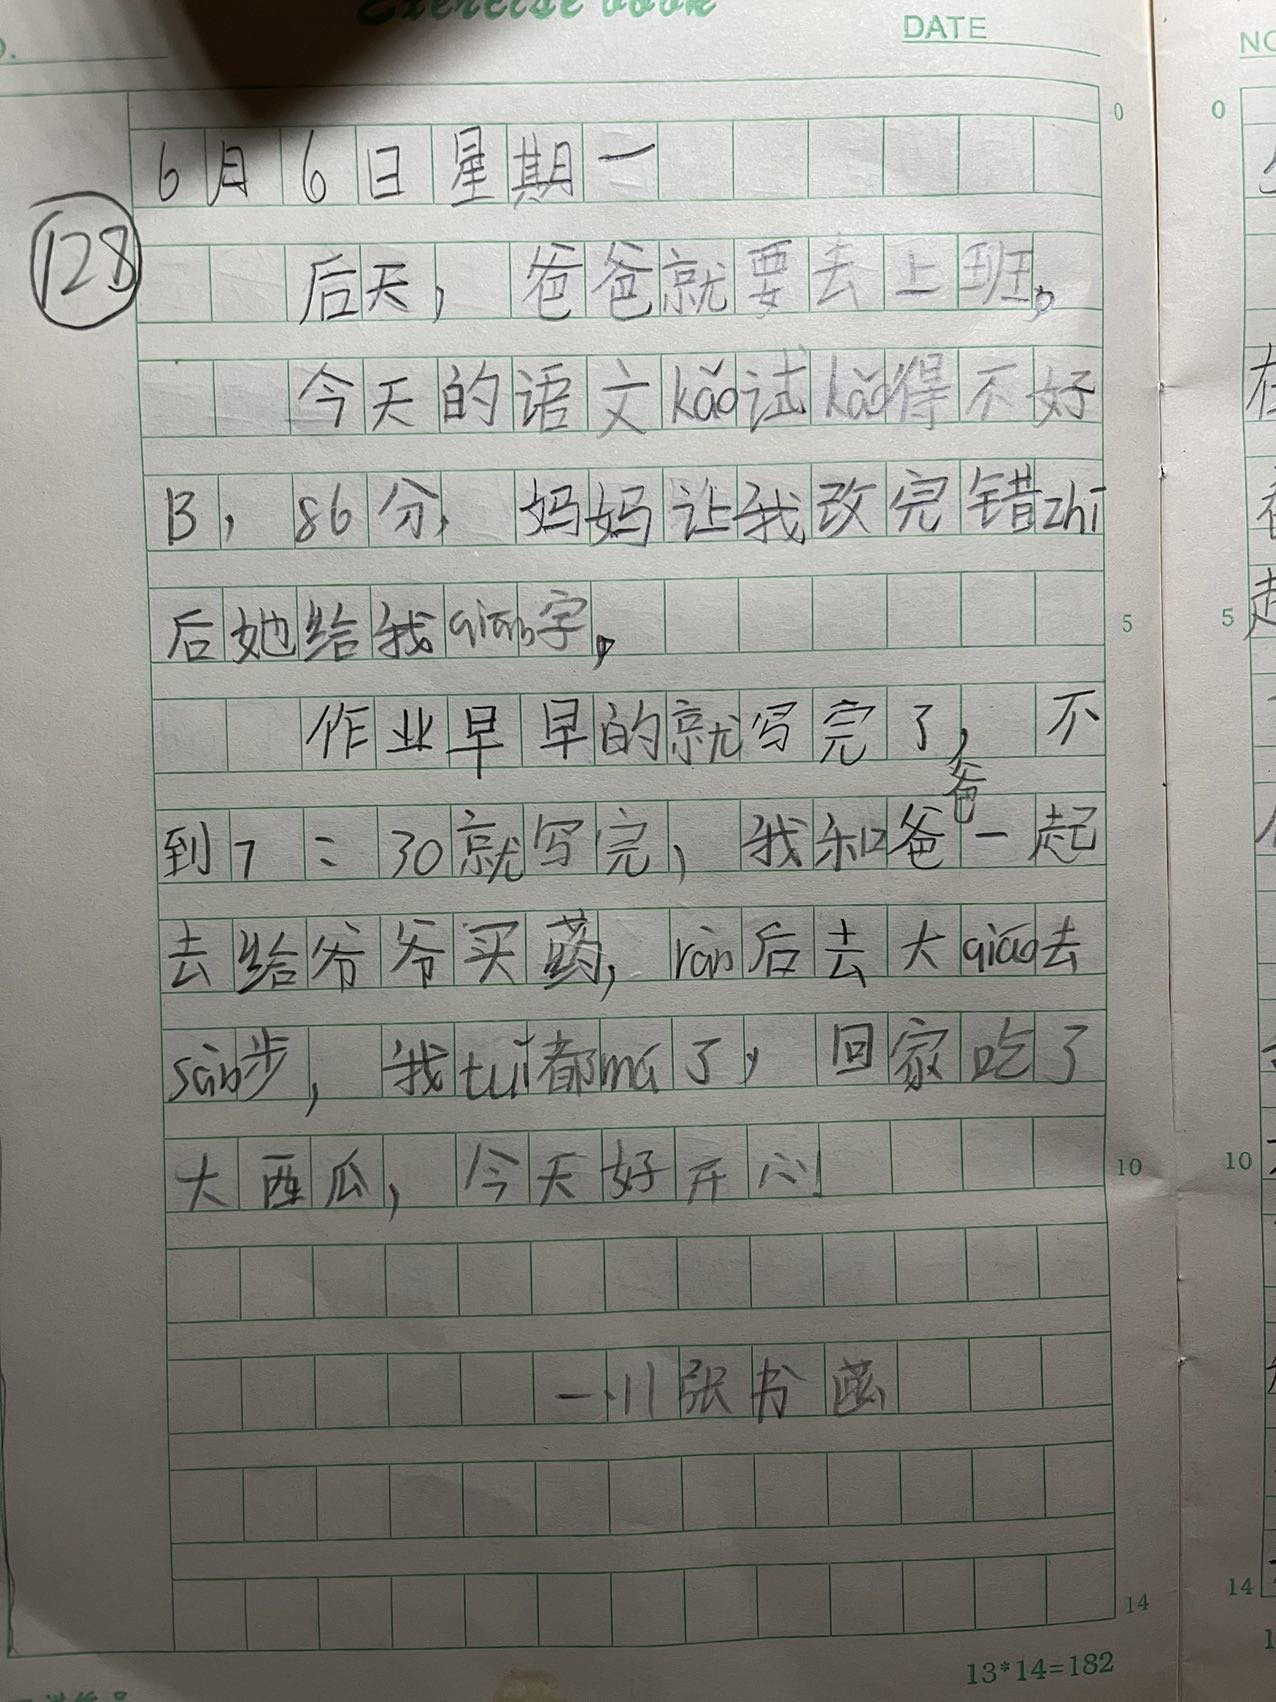 Exercise book
DATE
6月6日星期一
128
后天，爸爸就要去上班。
今天的语文kǎo试kǎo得不好
B，86分，妈妈让我改完错zhī
后她给我qiān字。
作业早早的就写完了，不
到7：30就写完，我和爸爸一起
去给爷爷买药，rán后去大qiáo去
sàn步，我tuǐ都má了，回家吃了
大西瓜，今天好开心
一.11张书菡
0
5
10
14
13*14=182
NO
0
5
10
14